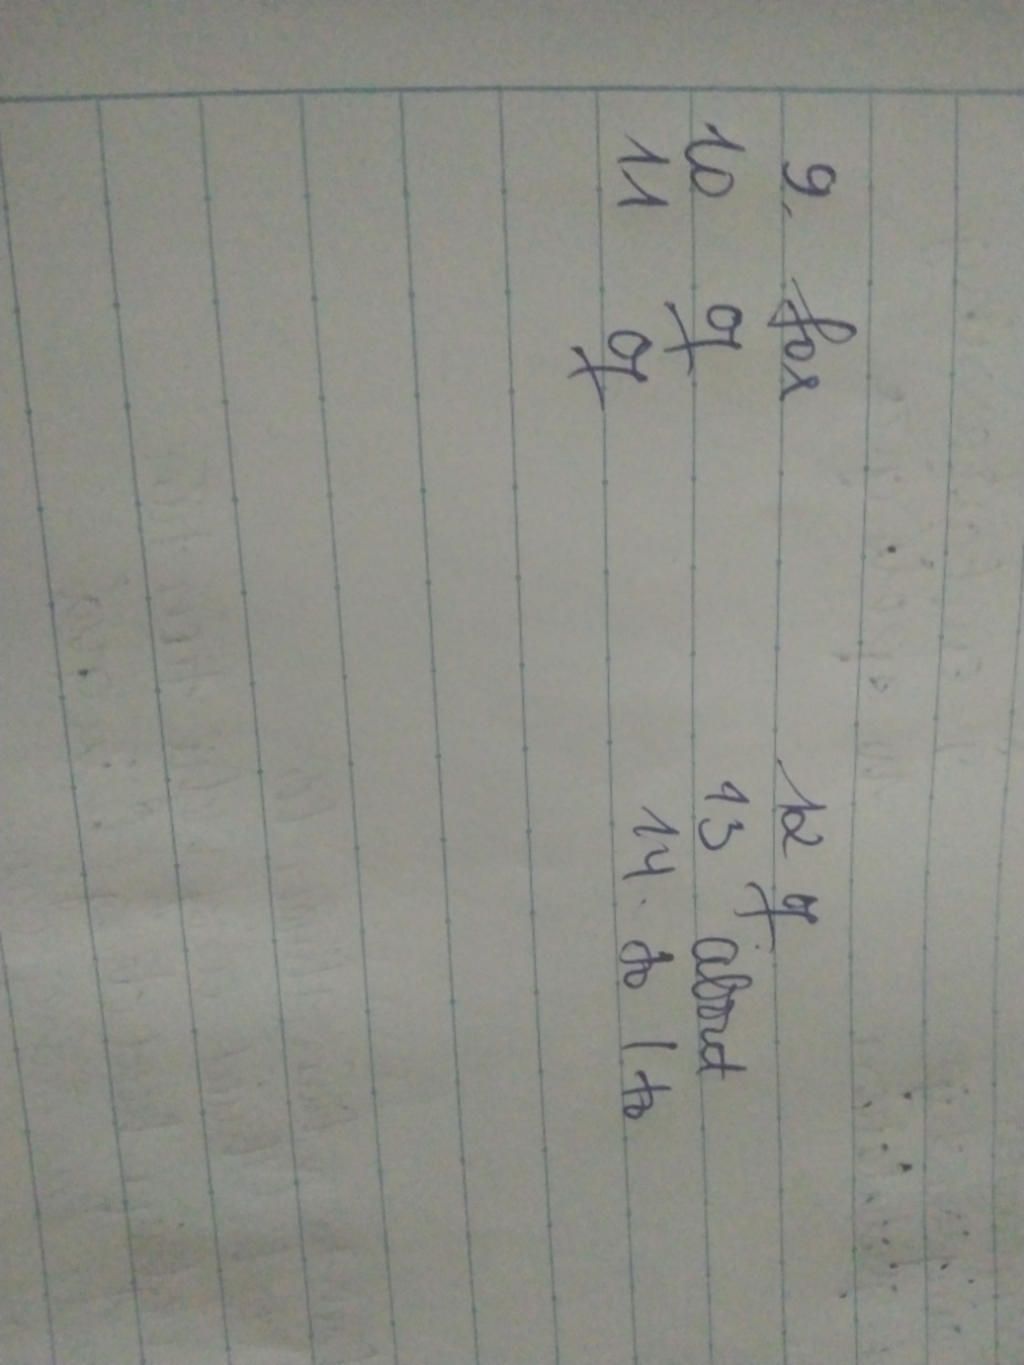 9. for
10 of
11 of
12 of
13 about
14. to / to